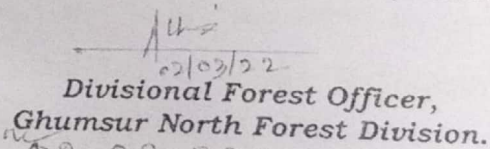 02/03/22
Divisional Forest Officer,
Ghumsur North Forest Division.